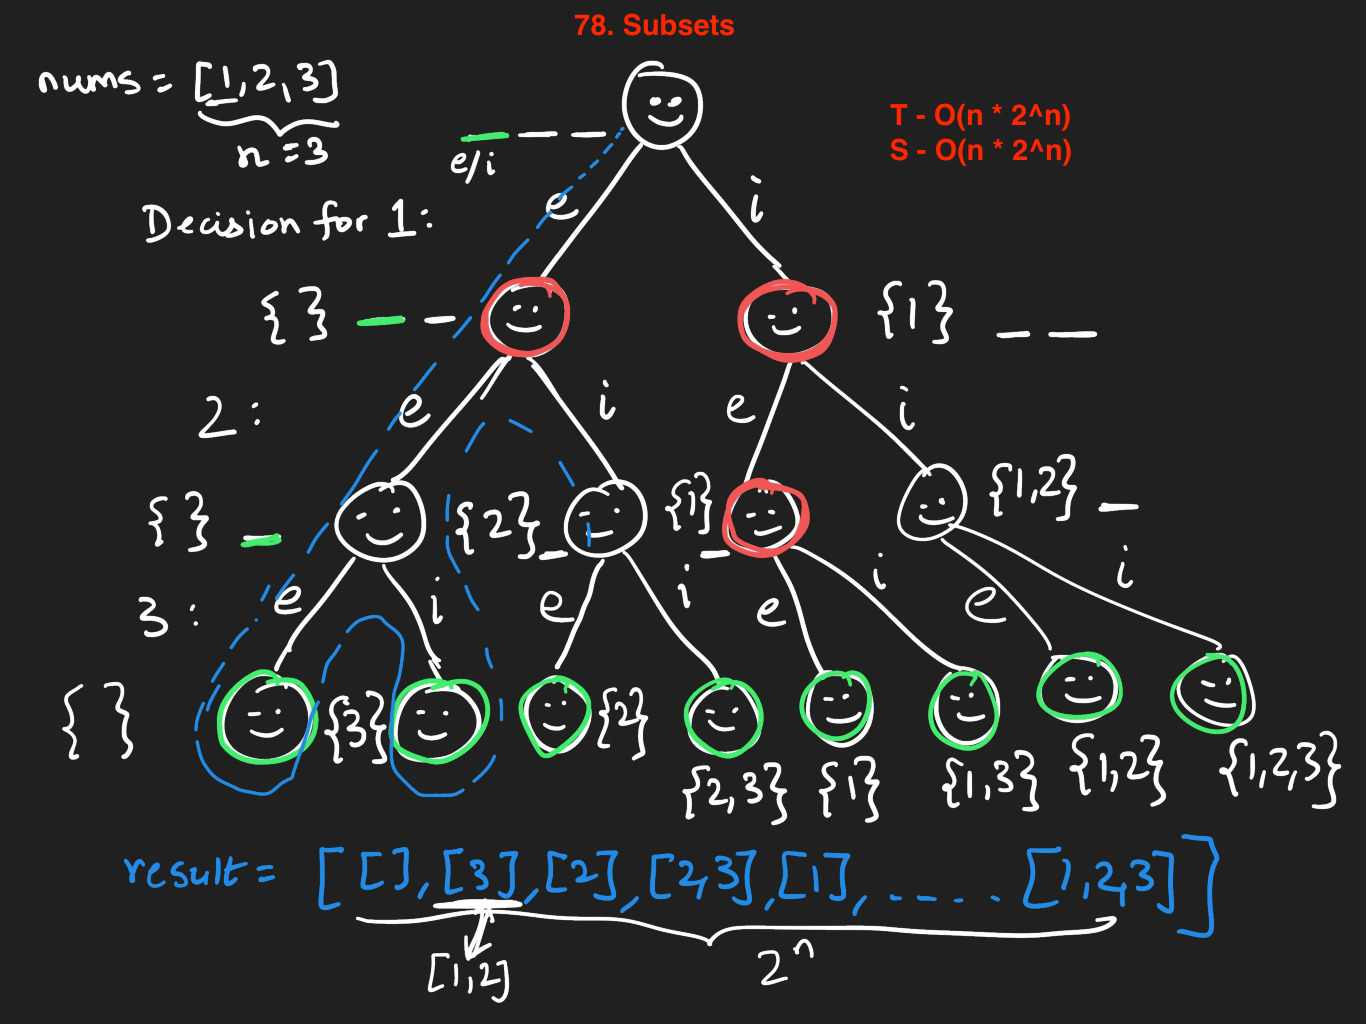 78. Subsets
nums = [1,2,3]
n = 3
T - O(n * 2^n)
S - O(n * 2^n)
e/i
e i
Decision for 1:
{ } {1}
e i e i
2:
{ } {2} {1} {1,2}
e i e i e i e i
3:
{ } {3} {2} {2,3} {1} {1,3} {1,2} {1,2,3}
result = [ [], [3], [2], [2,3], [1], ----. [1,2,3] ]
[1,2] 2^n